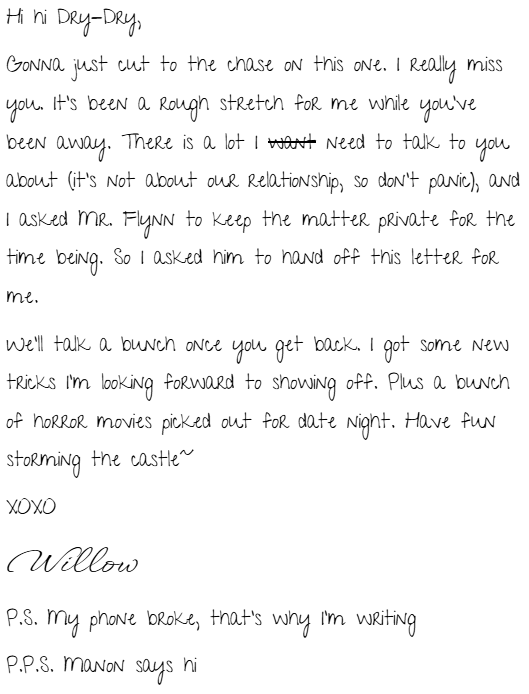 Hi hi Dry-Dry,
Gonna just cut to the chase on this one. I really miss
you. It's been a rough stretch for me while you've
been away. There is a lot I want need to talk to you
about (it's not about our relationship, so don't panic), and
I asked Mr. Flynn to keep the matter private for the
time being. So I asked him to hand off this letter for
me.
We'll talk a bunch once you get back. I got some new
tricks I'm looking forward to showing off. Plus a bunch
of horror movies picked out for date night. Have fun
storming the castle~
XOXO
Willow
P.S. My phone broke, that's why I'm writing
P.P.S. Manon says hi